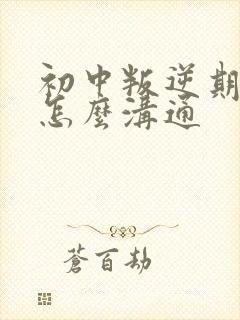 初中叛逆期
怎麼溝通
蒼百劫